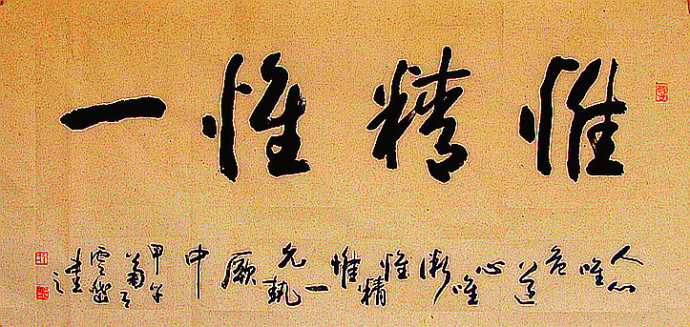 惟精惟一
人心唯危道心唯微惟精惟一允執厥中
甲午
菊月
雲
書之